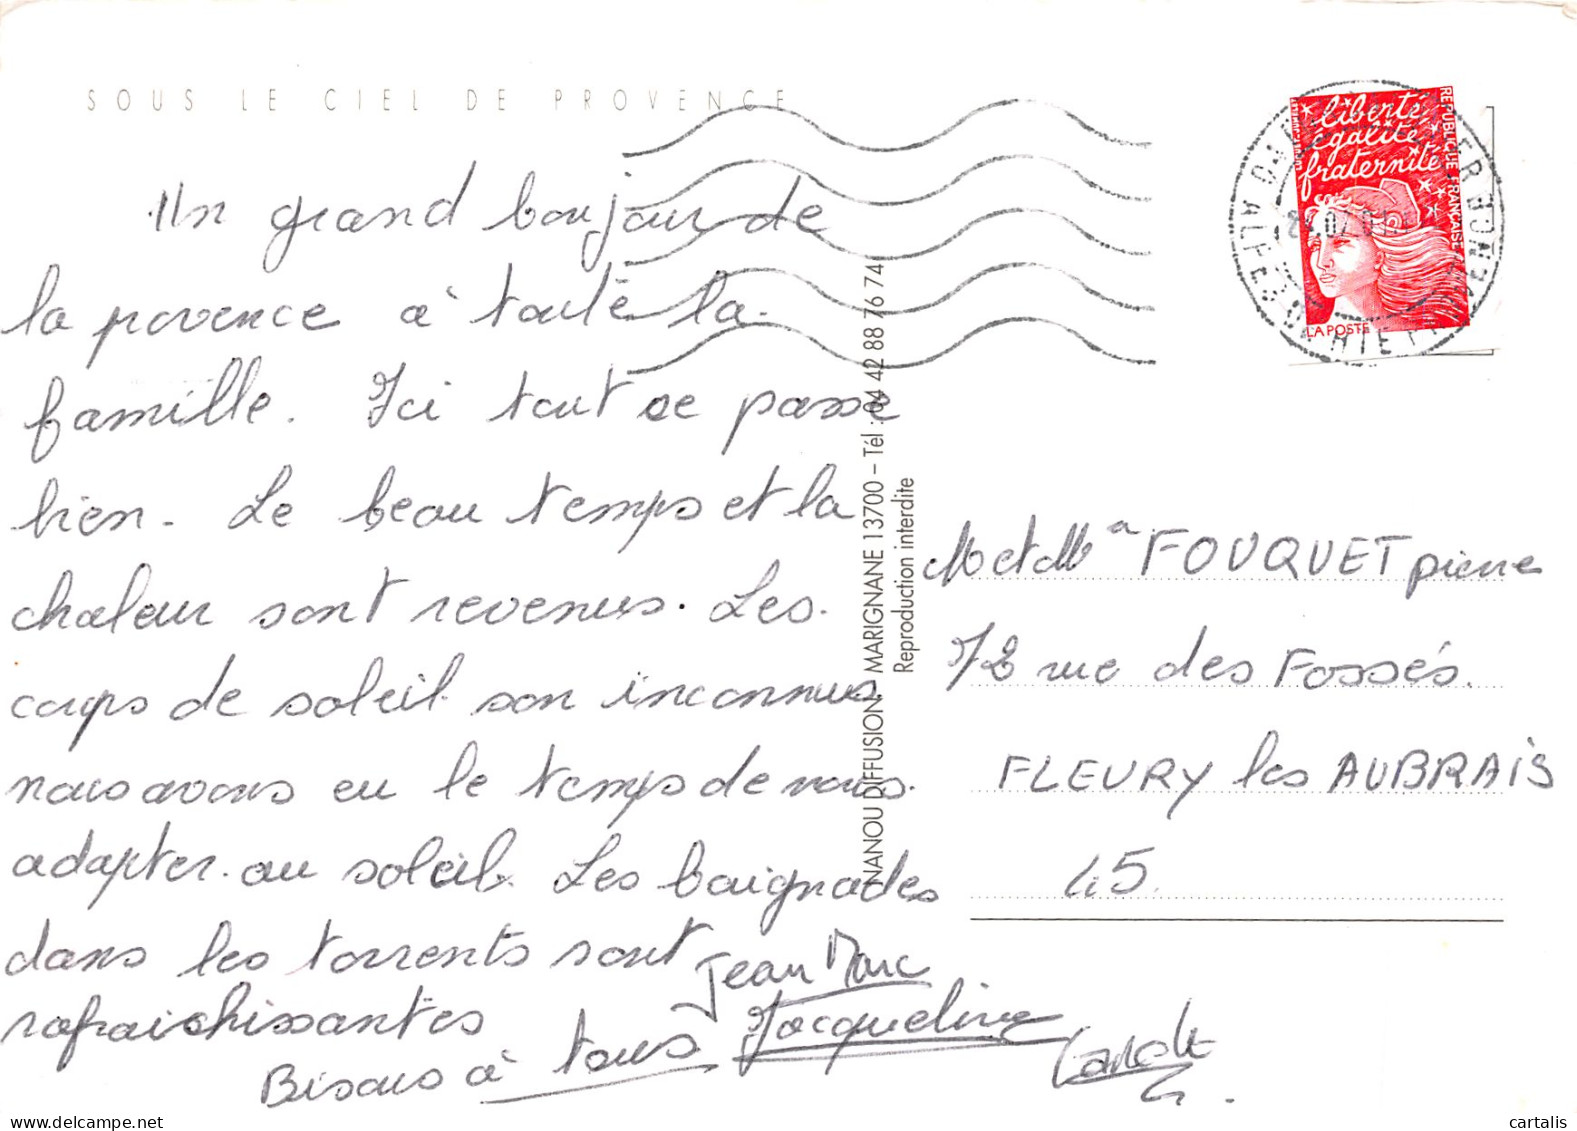 SOUS LE CIEL DE PROVENCE
Un grand bonjour de
la provence à toute la
famille. Ici tout se passe
bien. Le beau temps et la
chaleur sont revenus. Les
coups de soleil son inconnus
nous avons eu le temps de nous
adapter au soleil. Les baignades
dans les torrents sont
rafraichissantes
Bisous à tous
Jean Marc
Jacqueline
Carole
NANOU DIFFUSION - MARIGNANE 13700 - Tél : 04 42 88 76 74
Reproduction interdite
liberté
égalité
fraternité
REPUBLIQUE FRANÇAISE
LA POSTE
FOUQUET pierre
72 rue des Fossés.
FLEURY les AUBRAIS
45.
cartalis